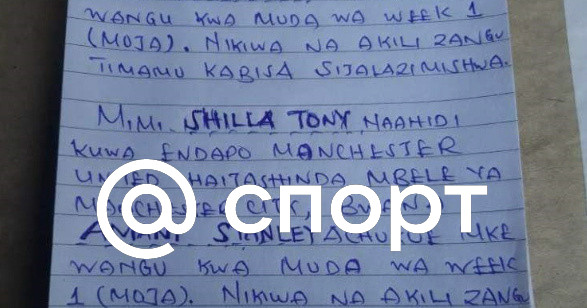 WANGU KWA MUDA WA WEEK 1
(MOJA). NIKIWA NA AKILI ZANGU
TIMAMU KABISA SIJALAZIMISHWA.
MIMI SHILLA TONY NAAHIDI
KUWA ENDAPO MANCHESTER
UNITED HAITASHINDA MBELE YA
CITY,
@ спорт
AMANI STANLEY ACHUKUE MKE
WANGU KWA MUDA WA WEEK
1 (MOJA). NIKIWA NA AKILI ZANGU